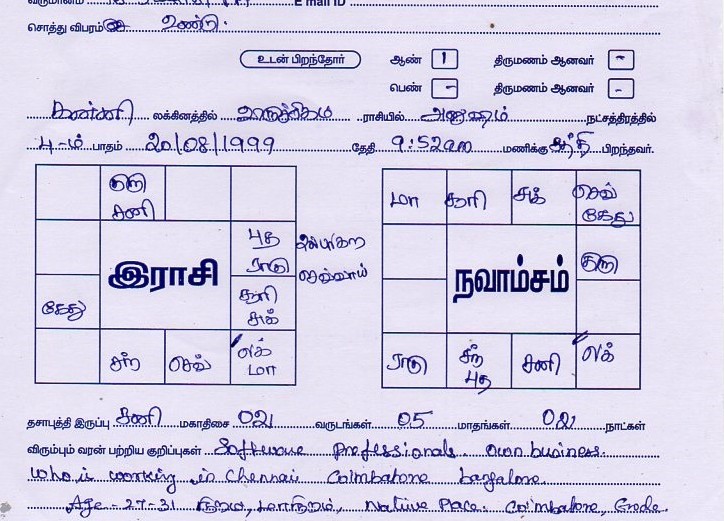 சொத்து விபரம் உண்டு.
உடன் பிறந்தோர் ஆண் 1 திருமணம் ஆனவர் -
பெண் - திருமணம் ஆனவர் -
கன்னி லக்கினத்தில் விருச்சிகம் ராசியில் அனுஷம் நட்சத்திரத்தில்
4-ம் பாதம் 20/08/1999 தேதி 9:52am மணிக்கு பிறந்தவர்.
குரு
சனி
புத
ராகு
இராசி
சூரி
சுக்
கேது
சந்
செவ்
லக்
மா
செவ்வாய்
மா சூரி சுக் செவ்
கேது
குரு
நவாம்சம்
ராகு சந்
புத சனி லக்
தசாபுத்தி இருப்பு சனி மகாதிசை 02 வருடங்கள் 05 மாதங்கள் 02 நாட்கள்
விரும்பும் வரன் பற்றிய குறிப்புகள் Software professionals. own business.
who is working in Chennai Coimbatore bangalore.
Age - 27-31 மாநிறம், Native Place. Coimbatore, Erode.